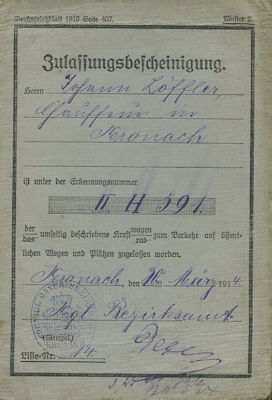 Reichsgesetzblatt 1910 Seite 407. Muster 2.
Zulassungsbescheinigung.
Herrn Johann Löffler,
Chauffeur in
Kronach
ist unter der Erkennungsnummer
II H 591.
der umseitig beschriebene Kraftwagen zum Verkehr auf öffent-
das rad
lichen Wegen und Plätzen zugelassen worden.
Kronach, den 20. März 1914.
Kgl. Bezirksamt
(Stempel.)
Liste-Nr. 14.